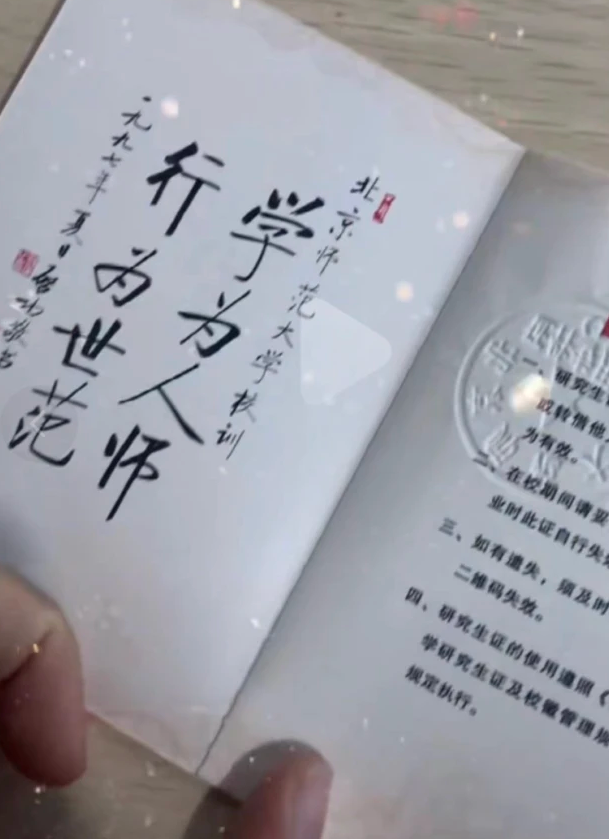 北京师范大学校训
学为人师
行为世范
一九九七年夏日启功敬书
一、研究生
或转借他
为有效。
二、在校期间请妥
业时此证自行失
三、如有遗失，须及时
二维码失效。
四、研究生证的使用遵照《
学研究生证及校徽管理规
规定执行。